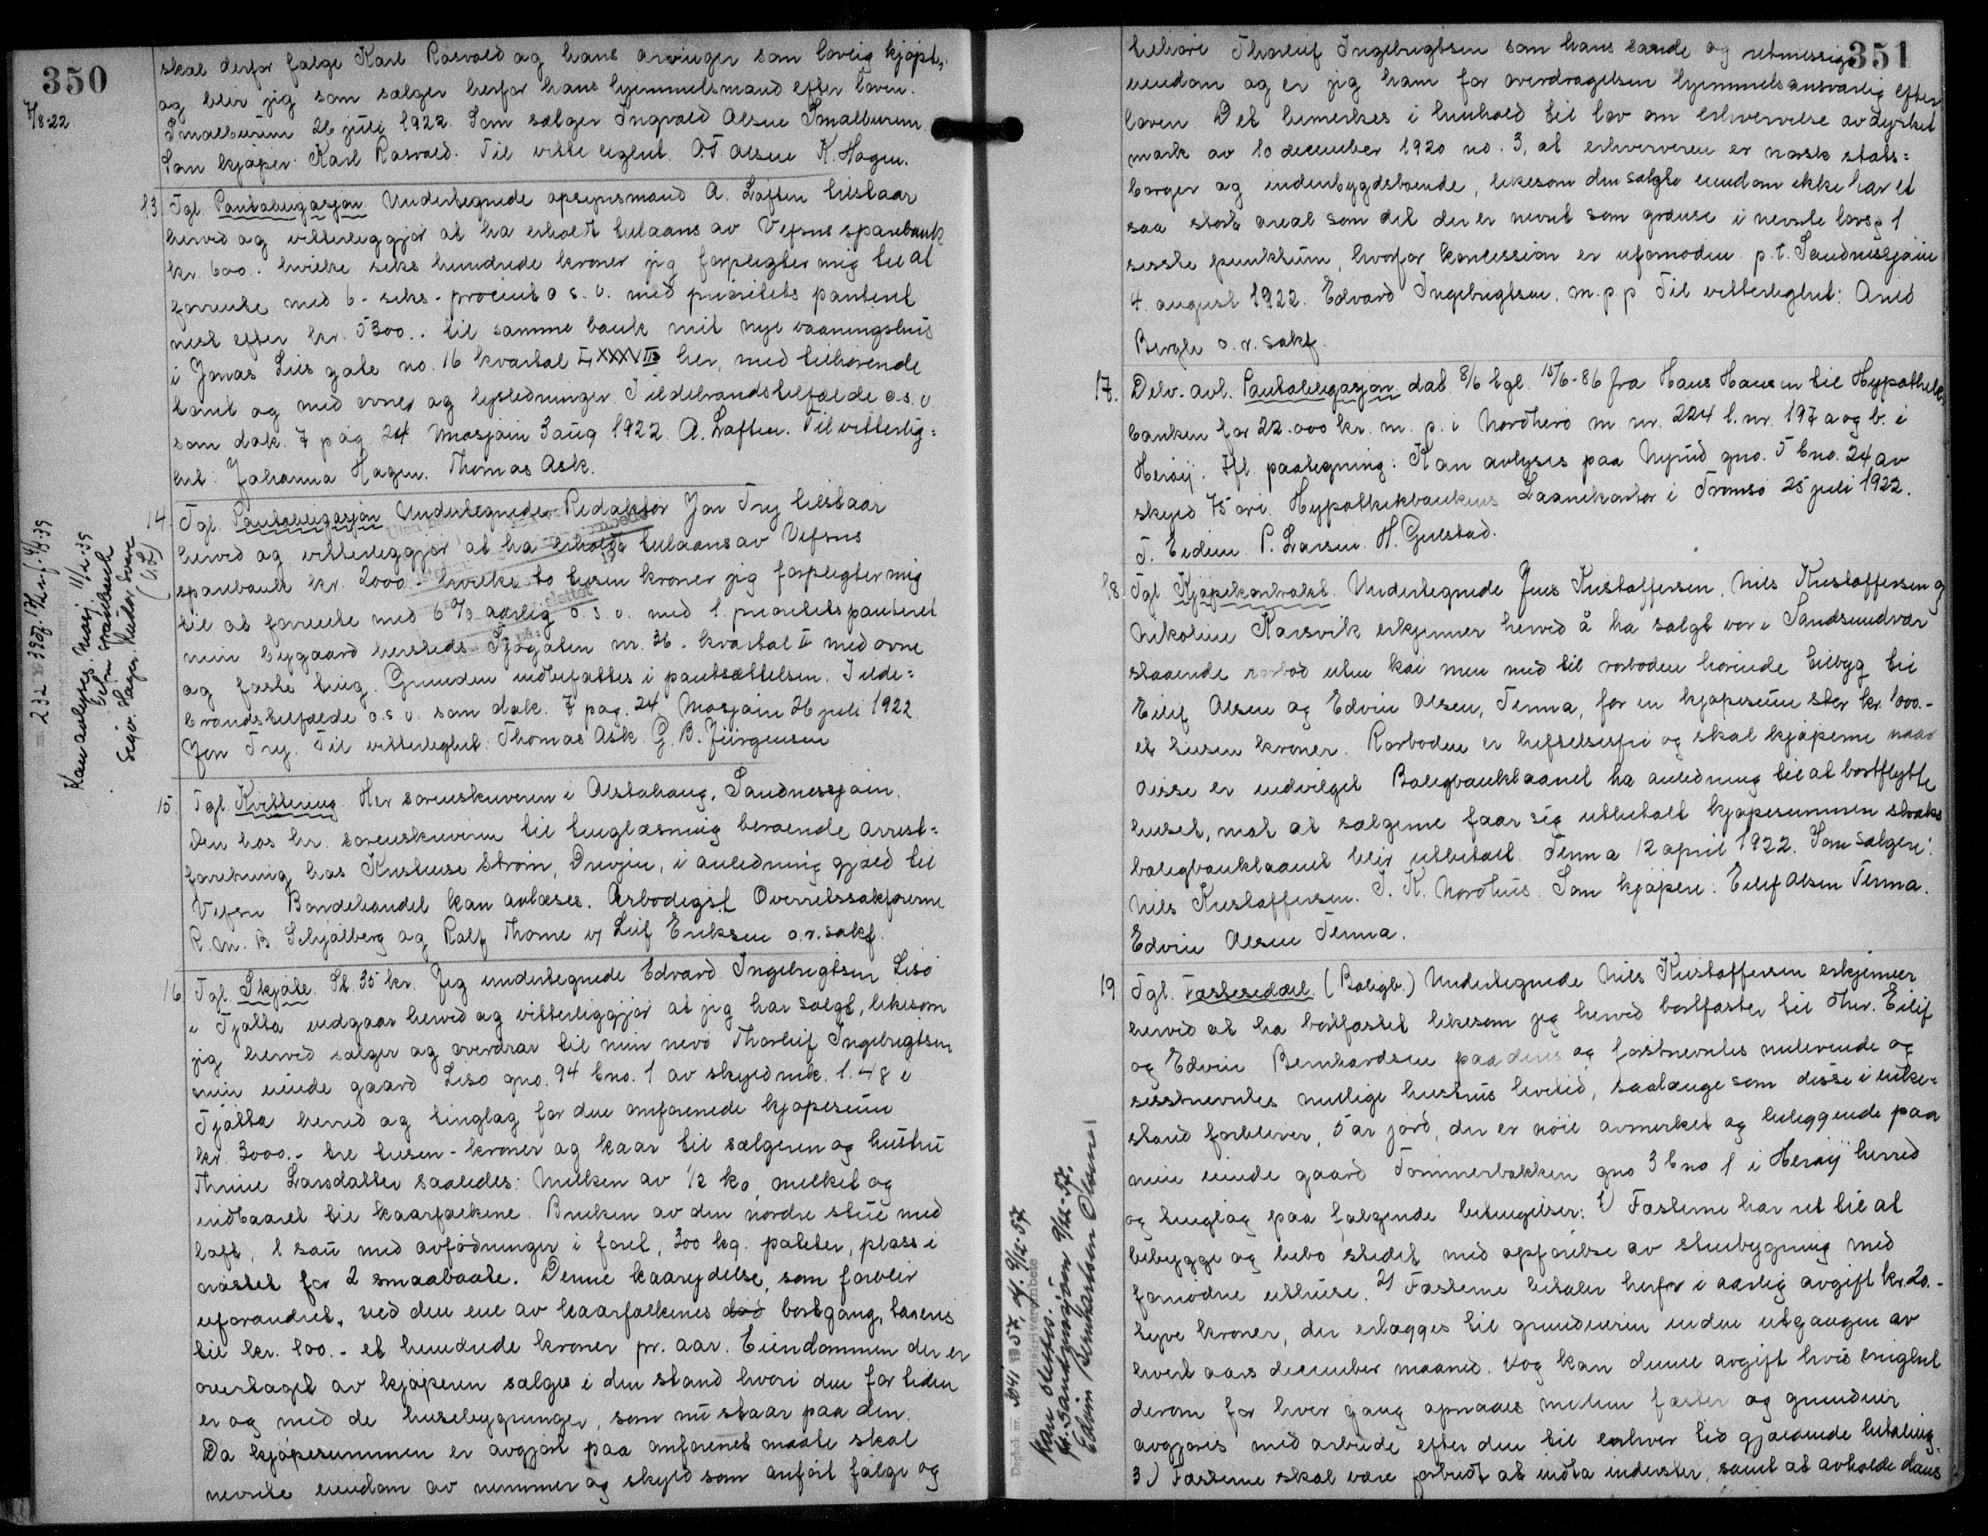 350
7/8-22
skal derfor følge Karl Rosvold og hans arvinger som lovlig kjøpt,
og blir jeg som sælger herfor hans hjemmelsmand efter loven.
Smalburum 26 juli 1922. Som sælger Ingvald Olsen Smalburum.
Som kjøper: Karl Rosvold. Til vitterlighet. O.T. Olsen K. Hagen.
13 Tgl. Pantobligasjon Undertegnede opsynsmand A. Løften tilstaar
herved og vitterliggjør at ha erholdt tillaans av Vefsns sparebank
kr. 600.. hvilke seks hundrede kroner jeg forpligter mig til at
forrente med 6 - seks - procent o. s. v. med prioritets panteret
nest efter kr. 5300.. til samme bank mit nye vaaningshus
i Jonas Lies gate no. 16 kvartal LXXXVII her, med tilhørende
tomt og med ovner og lysledninger. I ildebrandstilfælde o.s.v.
som dok. 7 pag. 24 Mosjøin 3 aug 1922. A. Løften. Til vitterlig=
het: Johanna Hagen. Thomas Ask.
14. Tgl. Pantobligasjon Undertegnede Redaktør Jon Try tilstaar
herved og vitterliggjør at ha erholdt tillaans av Vefsns
sparebank kr. 2000 - hvilke to tusen kroner jeg forpligter mig
til at forrente med 6 % aarlig o. s. v. med 1. prioritets panteret
min bygaard hersteds Sjøgaten nr. 36. kvartal V med ovne
og faste ting. Grunden indbefattes i pantsættelsen. I ilde=
brandstilfælde o. s. v. som dok. 7 pag. 24. Mosjøin 26 juli 1922.
Jon Try. Til vitterlighet: Thomas Ask. G. B. Jürgensen
15 Tgl. Kvittering Hr sorenskriveren i Alstahaug, Sandnessjøin.
Den hos hr. sorenskriveren til tinglæsning beroende arrest=
forretning hos Kristense Strøm, Drevjen, i anledning gjæld til
Vefsn Bondehandel kan avlæses. Ærbødigst Overretssakførerne
R. M. B. Schjølberg og Rolf Thome v/ Leif Eriksen o.r. sakf.
16 Tgl. Skjøte. St. 35 kr. Jeg undertegnede Edvard Ingebrigtsen Lisø
i Tjøtta vedgaar herved og vitterliggjør at jeg har solgt, likesom
jeg herved sælger og overdrar til min nevø Thorleif Ingebrigtsen
min eiende gaard Lisø gno. 94 bno. 1 av skyldmk. 1.48 i
Tjøtta herred og tinglag for den omforenede kjøpesum
kr. 3000.- tre tusen - kroner og kaar til sælgeren og hustru
Thrine Larsdatter saaledes: Melken av 1/2 ko, melket og
indbaaret til kaarfolkene. Bruken av den nordre stue med
loft, 1 sau med avfødninger i foret, 300 kg. poteter, plass i
nøstet for 2 smaabaate. Denne kaarydelse, som forblir
uforandret, ved den ene av kaarfolkenes død bortgang, taxeres
til kr. 100.- et hundrede kroner pr. aar. Eiendommen der er
overtaget av kjøperen sælges i den stand hvori den for tiden
er og med de husebygninger, som nu staar paa den.
Da kjøpesummen er avgjort paa omforenet maate skal
nevnte eiendom av nummer og skyld som anført følge og
232 1939 dgf. 17/4 knf. 4/8-39
Kan avlyses. Mosj 11/2-39
Vefsn Sparebank
351
tilhøre Thorleif Ingebrigtsen som hans sande og retmessige
eiendom og er jeg ham for overdragelsen hjemmelsansvarlig efter
loven. Det bemerkes i henhold til lov om erhvervelse av dyrket
mark av 10 december 1920 no. 3, at erhververen er norsk stats=
borger og indenbygdsboende, likesom den solgte eiendom ikke har et
saa stort areal som det der er nevnt som grænse i nevnte lovs § 1
sisste punktum, hvorfor koncession er ufornøden. p. t. Sandnessjøin
4. august 1922. Edvard Ingebrigtsen. m. p. p. Til vitterlighet: Arild
Bergh o. r. sakf.
17. Delv. avl. Pantobligasjon dat. 8/6 tgl. 15/6-86 fra Hans Hansen til Hypothek-
banken for 22.000 kr. m. p. i Nordherø m nr. 224 l. nr. 197 a og b. i
Herøy. Ifl. paategning: Kan avlyses paa Nyrud gno. 5 bno. 24 av
skyld 75 øre. Hypothekbankens Laanekontor i Tromsø 25 juli 1922.
T. Eidem. P. Larsen. H. Gulstad.
18. Tgl. Kjøpekontrakt. Undertegnede Jens Kristoffersen, Nils Kristoffersen og
Nikoline Karsvik erkjenner herved å ha solgt vor i Sandsundvær
staaende rorbod uten kai men med til rorboden hørende tilbyg til
Eilif Olsen og Edvin Olsen, Tenna, for en kjøpesum stor kr. 1000.-
et tusen kroner. Rorboden er heftelsesfri og skal kjøperne naar
disse er indvilget Boligbanklaanet ha anledning til at bortflytte
huset, mot at sælgerne faar sig utbetalt kjøpesummen straks
boligbanklaanet blir utbetalt. Tenna 12 april 1922. Som sælgere:
Nils Kristoffersen. J. K. Nordhus. Som kjøpere: Eilif Olsen Tenna.
Edvin Olsen Tenna.
19 Tgl. Fæstesedæl. (Boligb.) Undertegnede Nils Kristoffersen erkjenner
herved at ha bortfæstet likesom jeg herved bortfæster til Ohr. Eilif
og Edvin Bernhardsen paa deres og førstnevntes nulevende og
sisstnevntes mulige hustrus levetid, saalænge som disse i enke=
stand forbliver, 5 ar jord, der er nøie avmerket og beliggende paa
min eiende gaard Tømmerbakken gno 3 bno 1 i Herøy herred
og tinglag paa følgende betingelser: 1) Fæsterne har ret til at
bebygge og bebo stedet med opførelse av stuebygning med
fornødne uthuse. 2) Fæsterne betaler herfor i aarlig avgift kr. 20.-
tyve kroner, der erlægges til grundeieren inden utgangen av
hvert aars december maaned. Og kan denne avgift hvis enighet
derom for hver gang opnaaes mellem fæster og grundeier
avgjøres med arbeide efter den til enhver tid gjældende betaling.
3) Fæsterne skal være forbudt at indta inderster, samt at avholde dans
Dagbok nr. 3041 1957, dgf. 9/12-57
Kan slettes.
pt. Sandnessjøen 9/12-57.
Edvin Bernhardsen Olsen